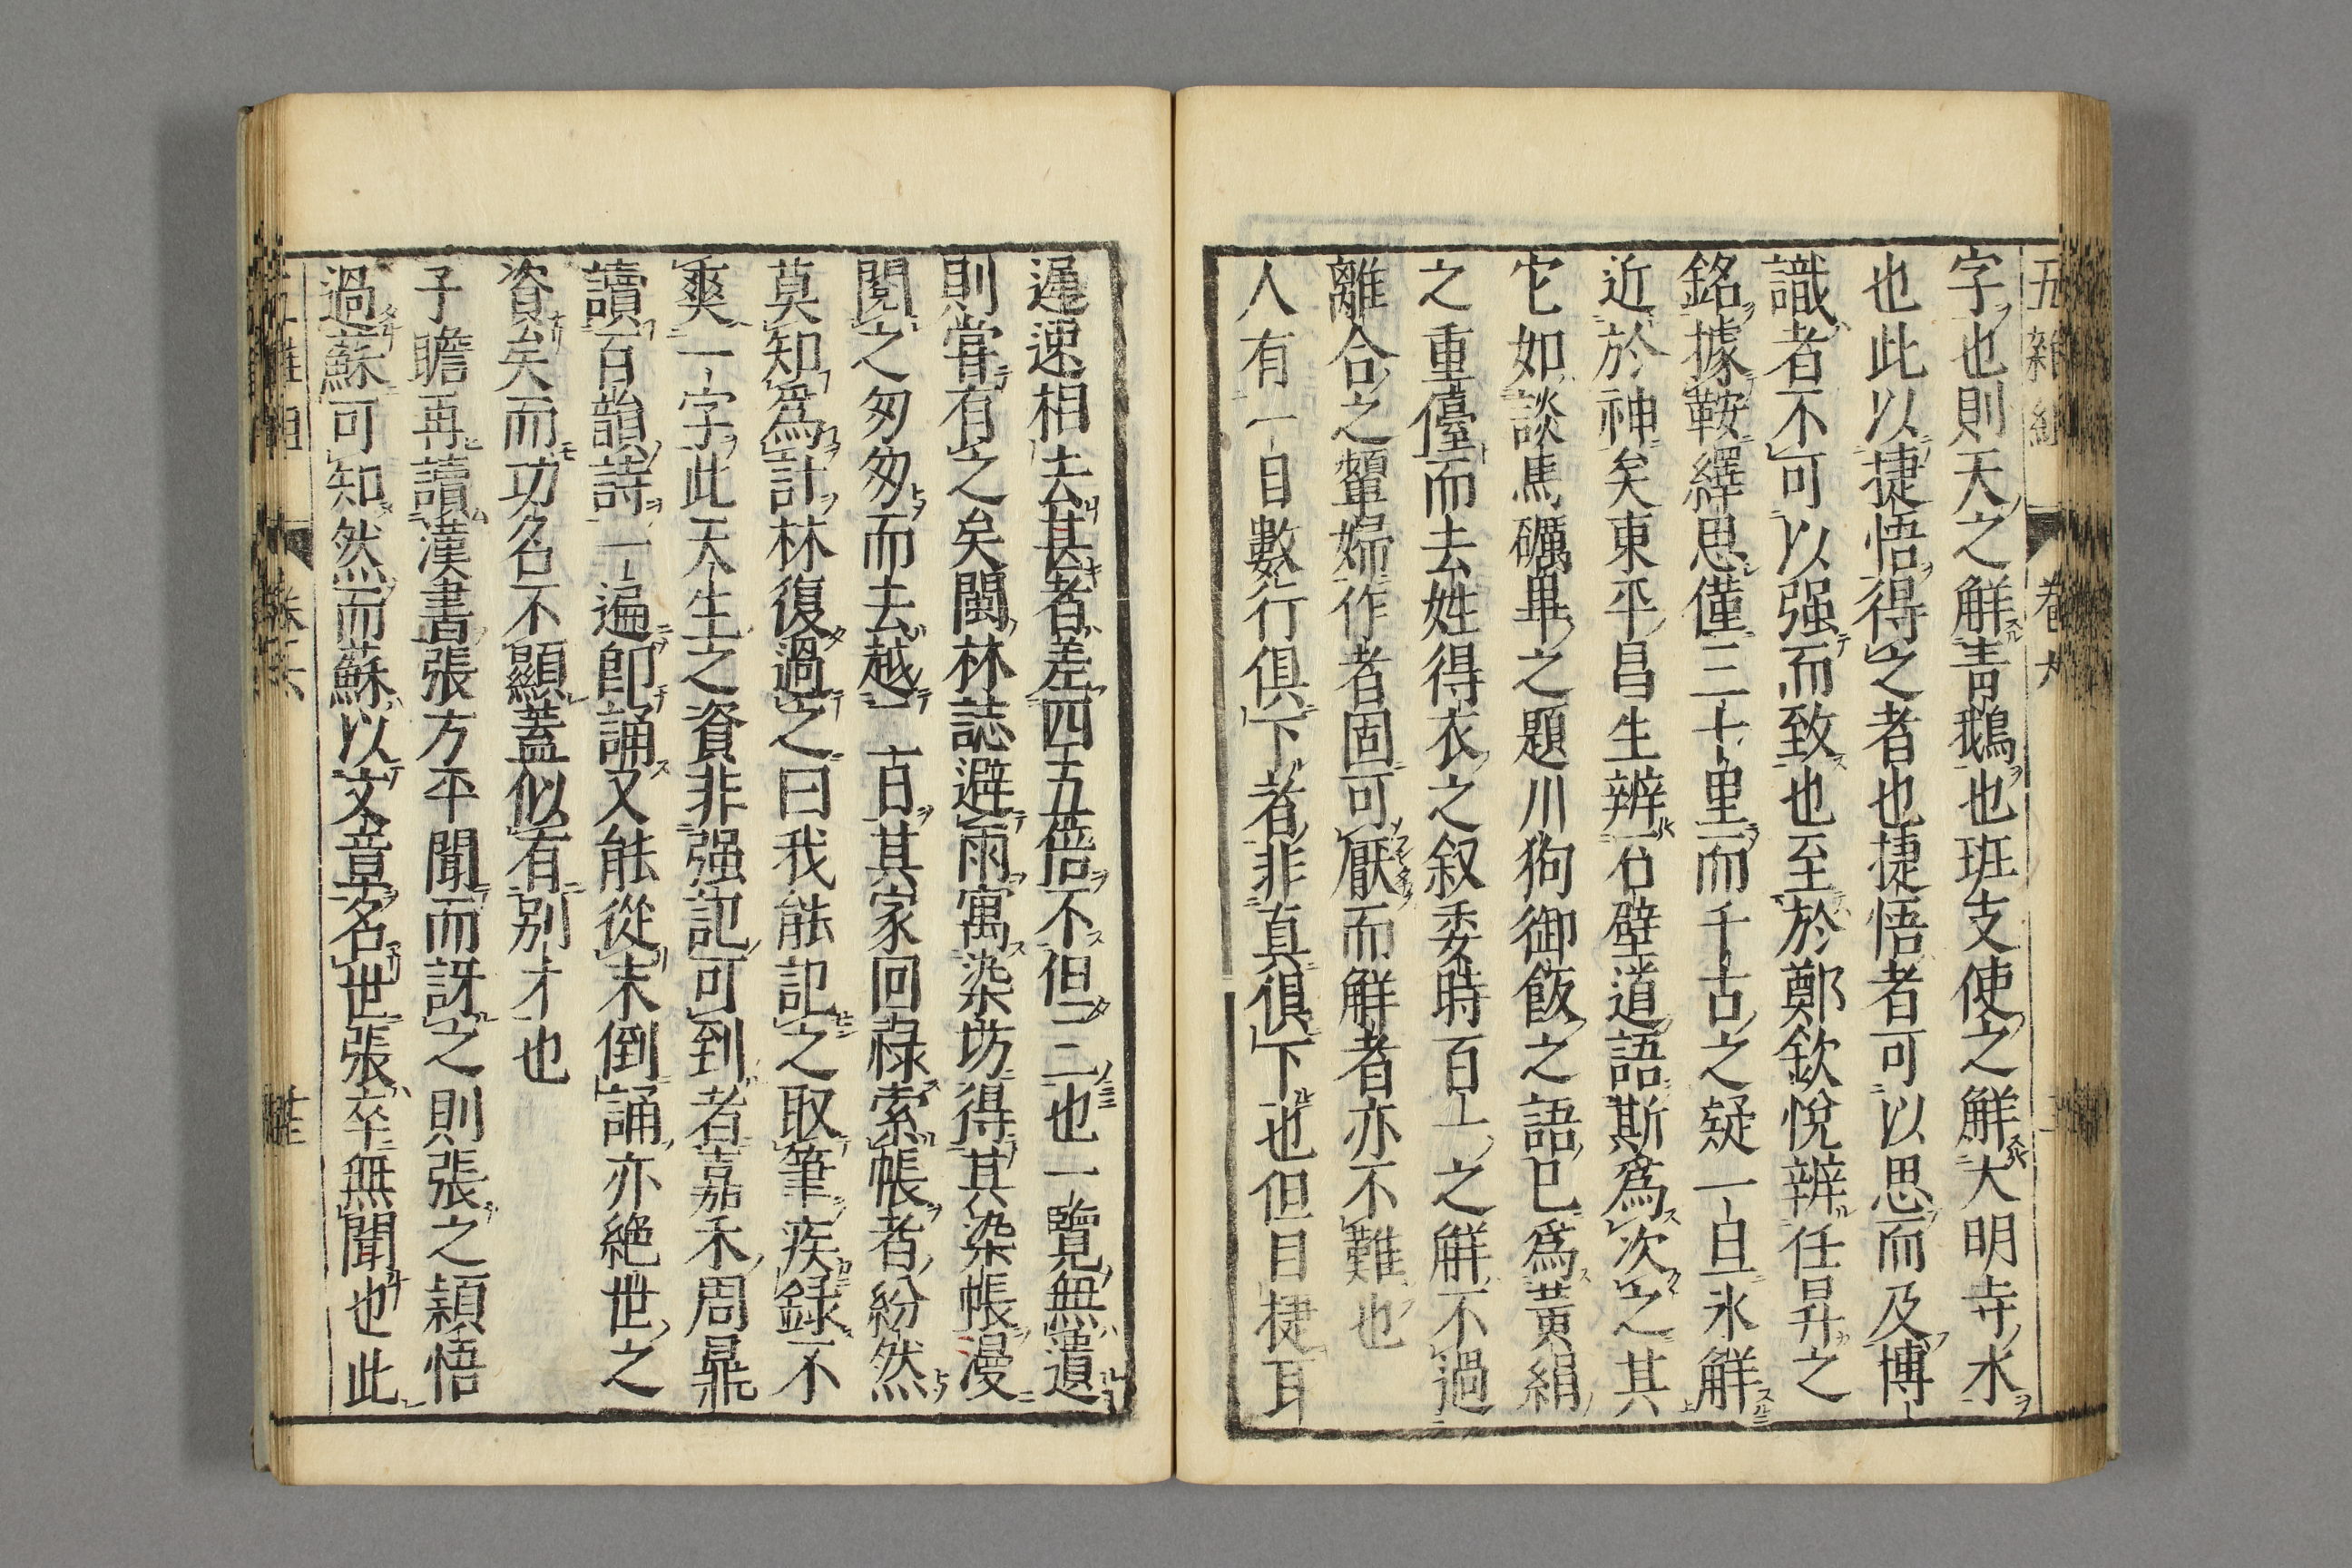 五雜組 卷六
字也則天之解青鵝也班支使之解大明寺水
也此以捷悟得之者也捷悟者可以思而及博
識者不可以强而致也至於鄭欽悅辨任昇之
銘據鞍繹思僅三十里而千古之疑一旦氷解
近於神矣東平昌生辨石壁道語斯爲次之其
它如談馬礪畢之題川狗御飯之語已爲黃絹
之重儓而去姓得衣之叙委時百上之解不過
離合之顰婦作者固可厭而解者亦不難也
人有一目數行俱下者非真俱下也但目捷耳
遲速相去甚者差四五倍不但一二也一覽無遺
則嘗有之矣閩林誌避雨寓染坊得其染帳漫
閱之匆匆而去越一百其家回祿索帳者紛然
莫知爲計林復過之曰我能記之取筆疾録不
爽一字此天生之資非强記可到者嘉禾周鼎
讀百韻詩一遍卽誦又能從末倒誦亦絶世之
資矣而功名不顯蓋似有別才也
子瞻再讀漢書張方平聞而訝之則張之穎悟
過蘇可知然而蘇以文章名世張卒無聞也此